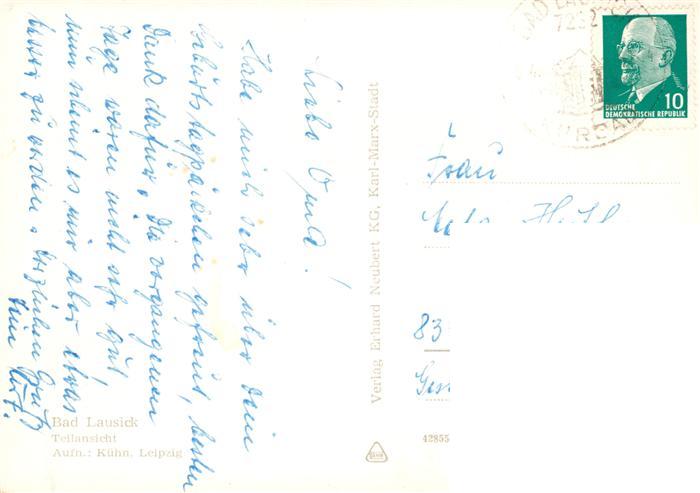 Liebe
Habe mich sehr über Dein
Geburtstagspäckchen gefreut, besten
Dank dafür. Die vergangenen
Tage waren nicht sehr gut,
nun scheint es mir aber etwas
besser zu werden. Herzlichen Gruß
Dein
Bad Lausick
Teilansicht
Aufn.: Kühn, Leipzig
Verlag Erhard Neubert KG, Karl-Marx-Stadt
42855
7232
10
DEUTSCHE
DEMOKRATISCHE REPUBLIK
Frau
83